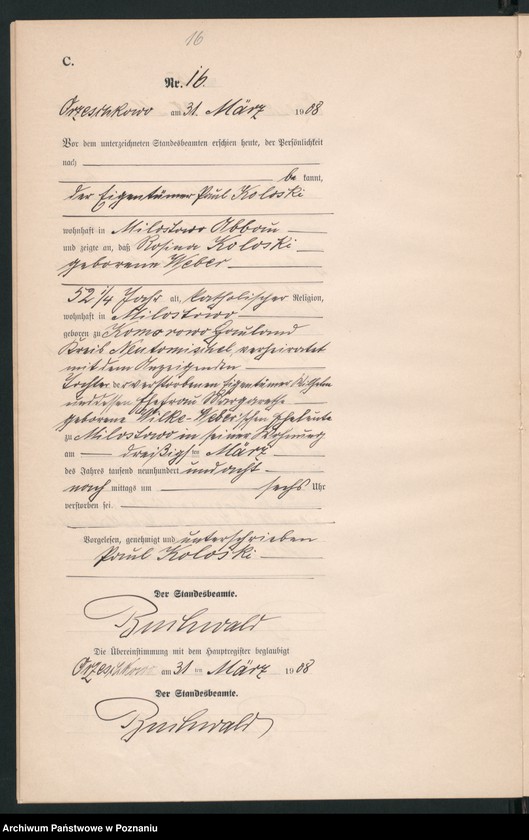 16
C.
Nr. 16.
Orzeschkowo am 31. März 1908
Vor dem unterzeichneten Standesbeamten erschien heute, der Persönlichkeit
nach
be kannt,
der Eigentümer Paul Koloski
wohnhaft in Milostowo Abbau
und zeigte an, daß Rosina Koloski
geborene Weber
52 1/4 Jahr alt, katholischer Religion,
wohnhaft in Milostowo
geboren zu Komorowo Hauland
Kreis Neutomischel, verheiratet
mit dem Anzeigenden
Tochter der verstorbenen Eigentümer
und dessen Ehefrau Margarethe
geborene Wilke-Weberschen Eheleute
zu Milostowo in seiner Wohnung
am dreißigsten März
des Jahres tausend neunhundert und acht
nach mittags um sechs Uhr
verstorben sei.
Vorgelesen, genehmigt und unterschrieben
Paul Koloski
Der Standesbeamte.
Buchwald
Die Übereinstimmung mit dem Hauptregister beglaubigt
Orzeschkowo am 31. ten März 1908
Der Standesbeamte.
Buchwald
Archiwum Państwowe w Poznaniu